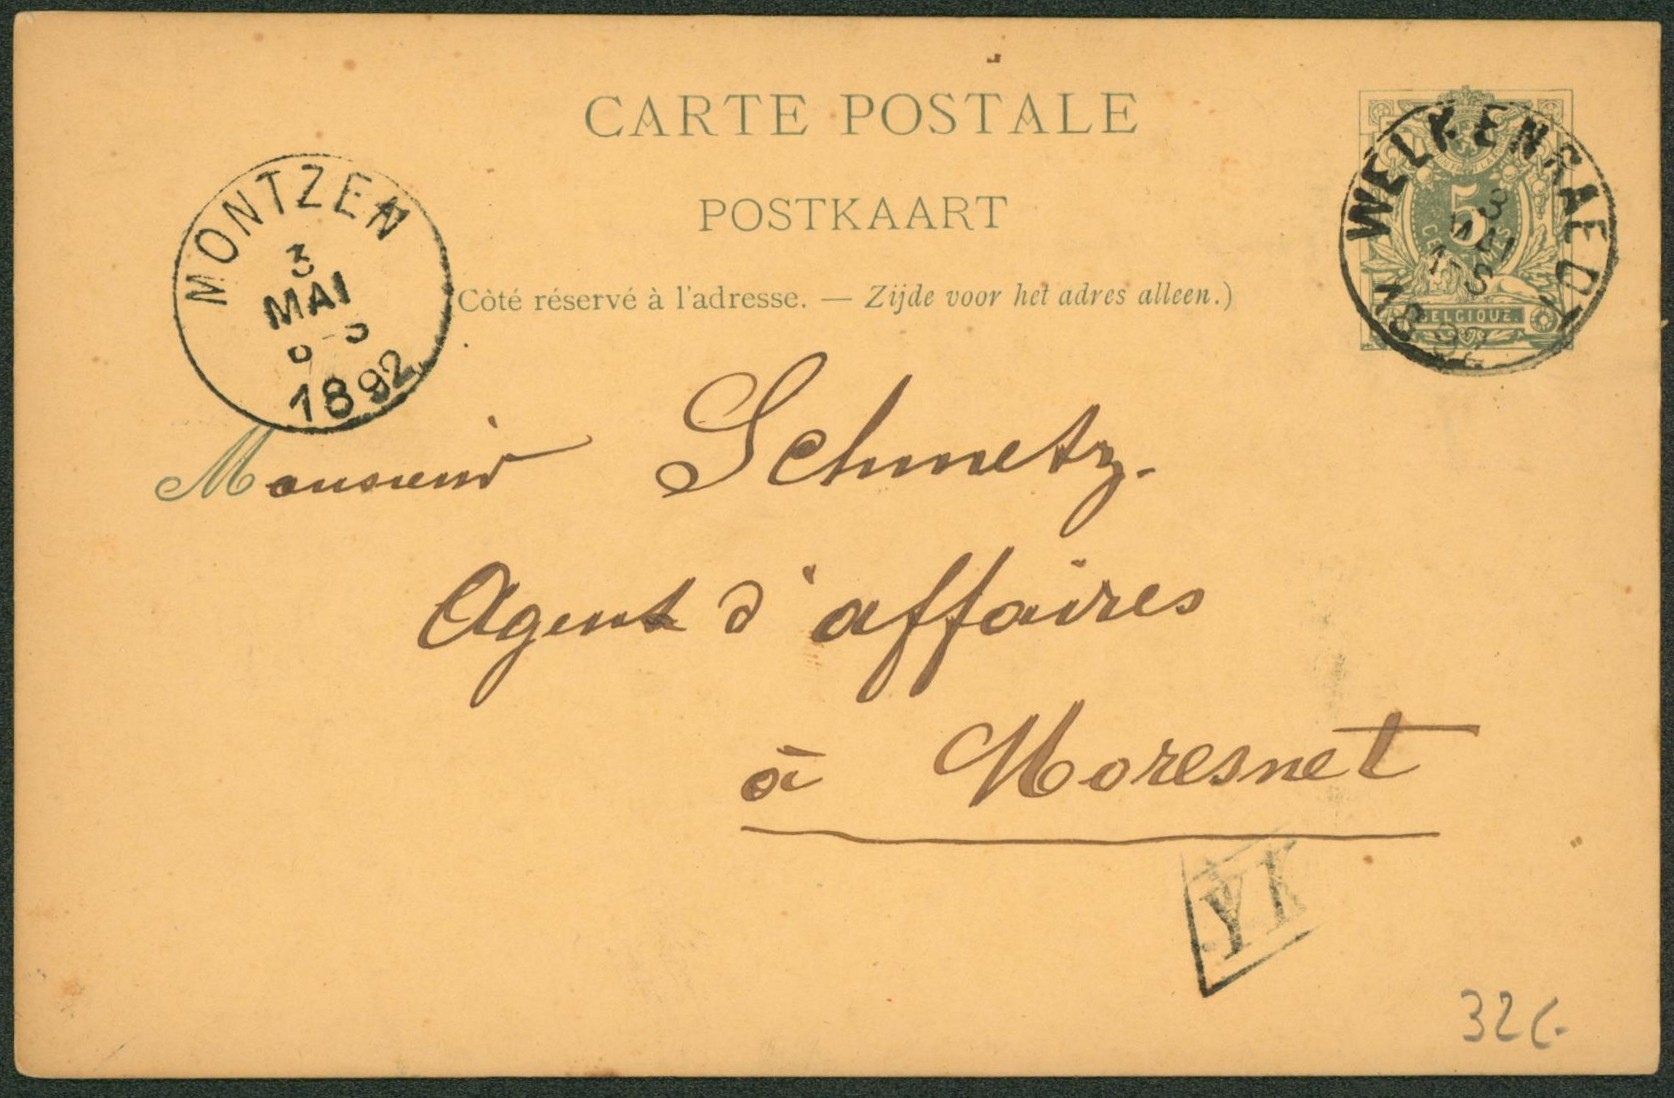 CARTE POSTALE
POSTKAART
(Côté réservé à l'adresse. — Zijde voor het adres alleen.)
MONTZEN
3
MAI
1892
WELKENRAEDT
3
MAI
1892
5
BELGIQUE.
Monsieur Schmetz.
Agent d'affaires
à Moresnet
YK
32